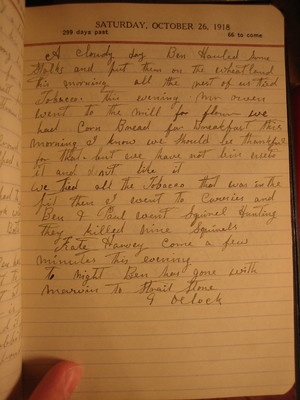 SATURDAY, OCTOBER 26, 1918
299 days past 66 to come
A Cloudy day Ben Hauled some
Stalks and put them on the Wheatland
this morning all the rest of us tied
Tobacco this evening Mr Owen
went to the Mill for flour we
had Corn Bread for Breakfast this
morning I know we should be thankful
for that but we have not bin used
it and dont like it
we tied all the Tobacco that was in the
pit then I went to Carries and
Ben & Paul went Squirrel Hunting
they killed nine Squirels
Kate Harvey Come a few
minutes this evening
to night Ben has gone with
marvin to Strait Stone
9 Oclock